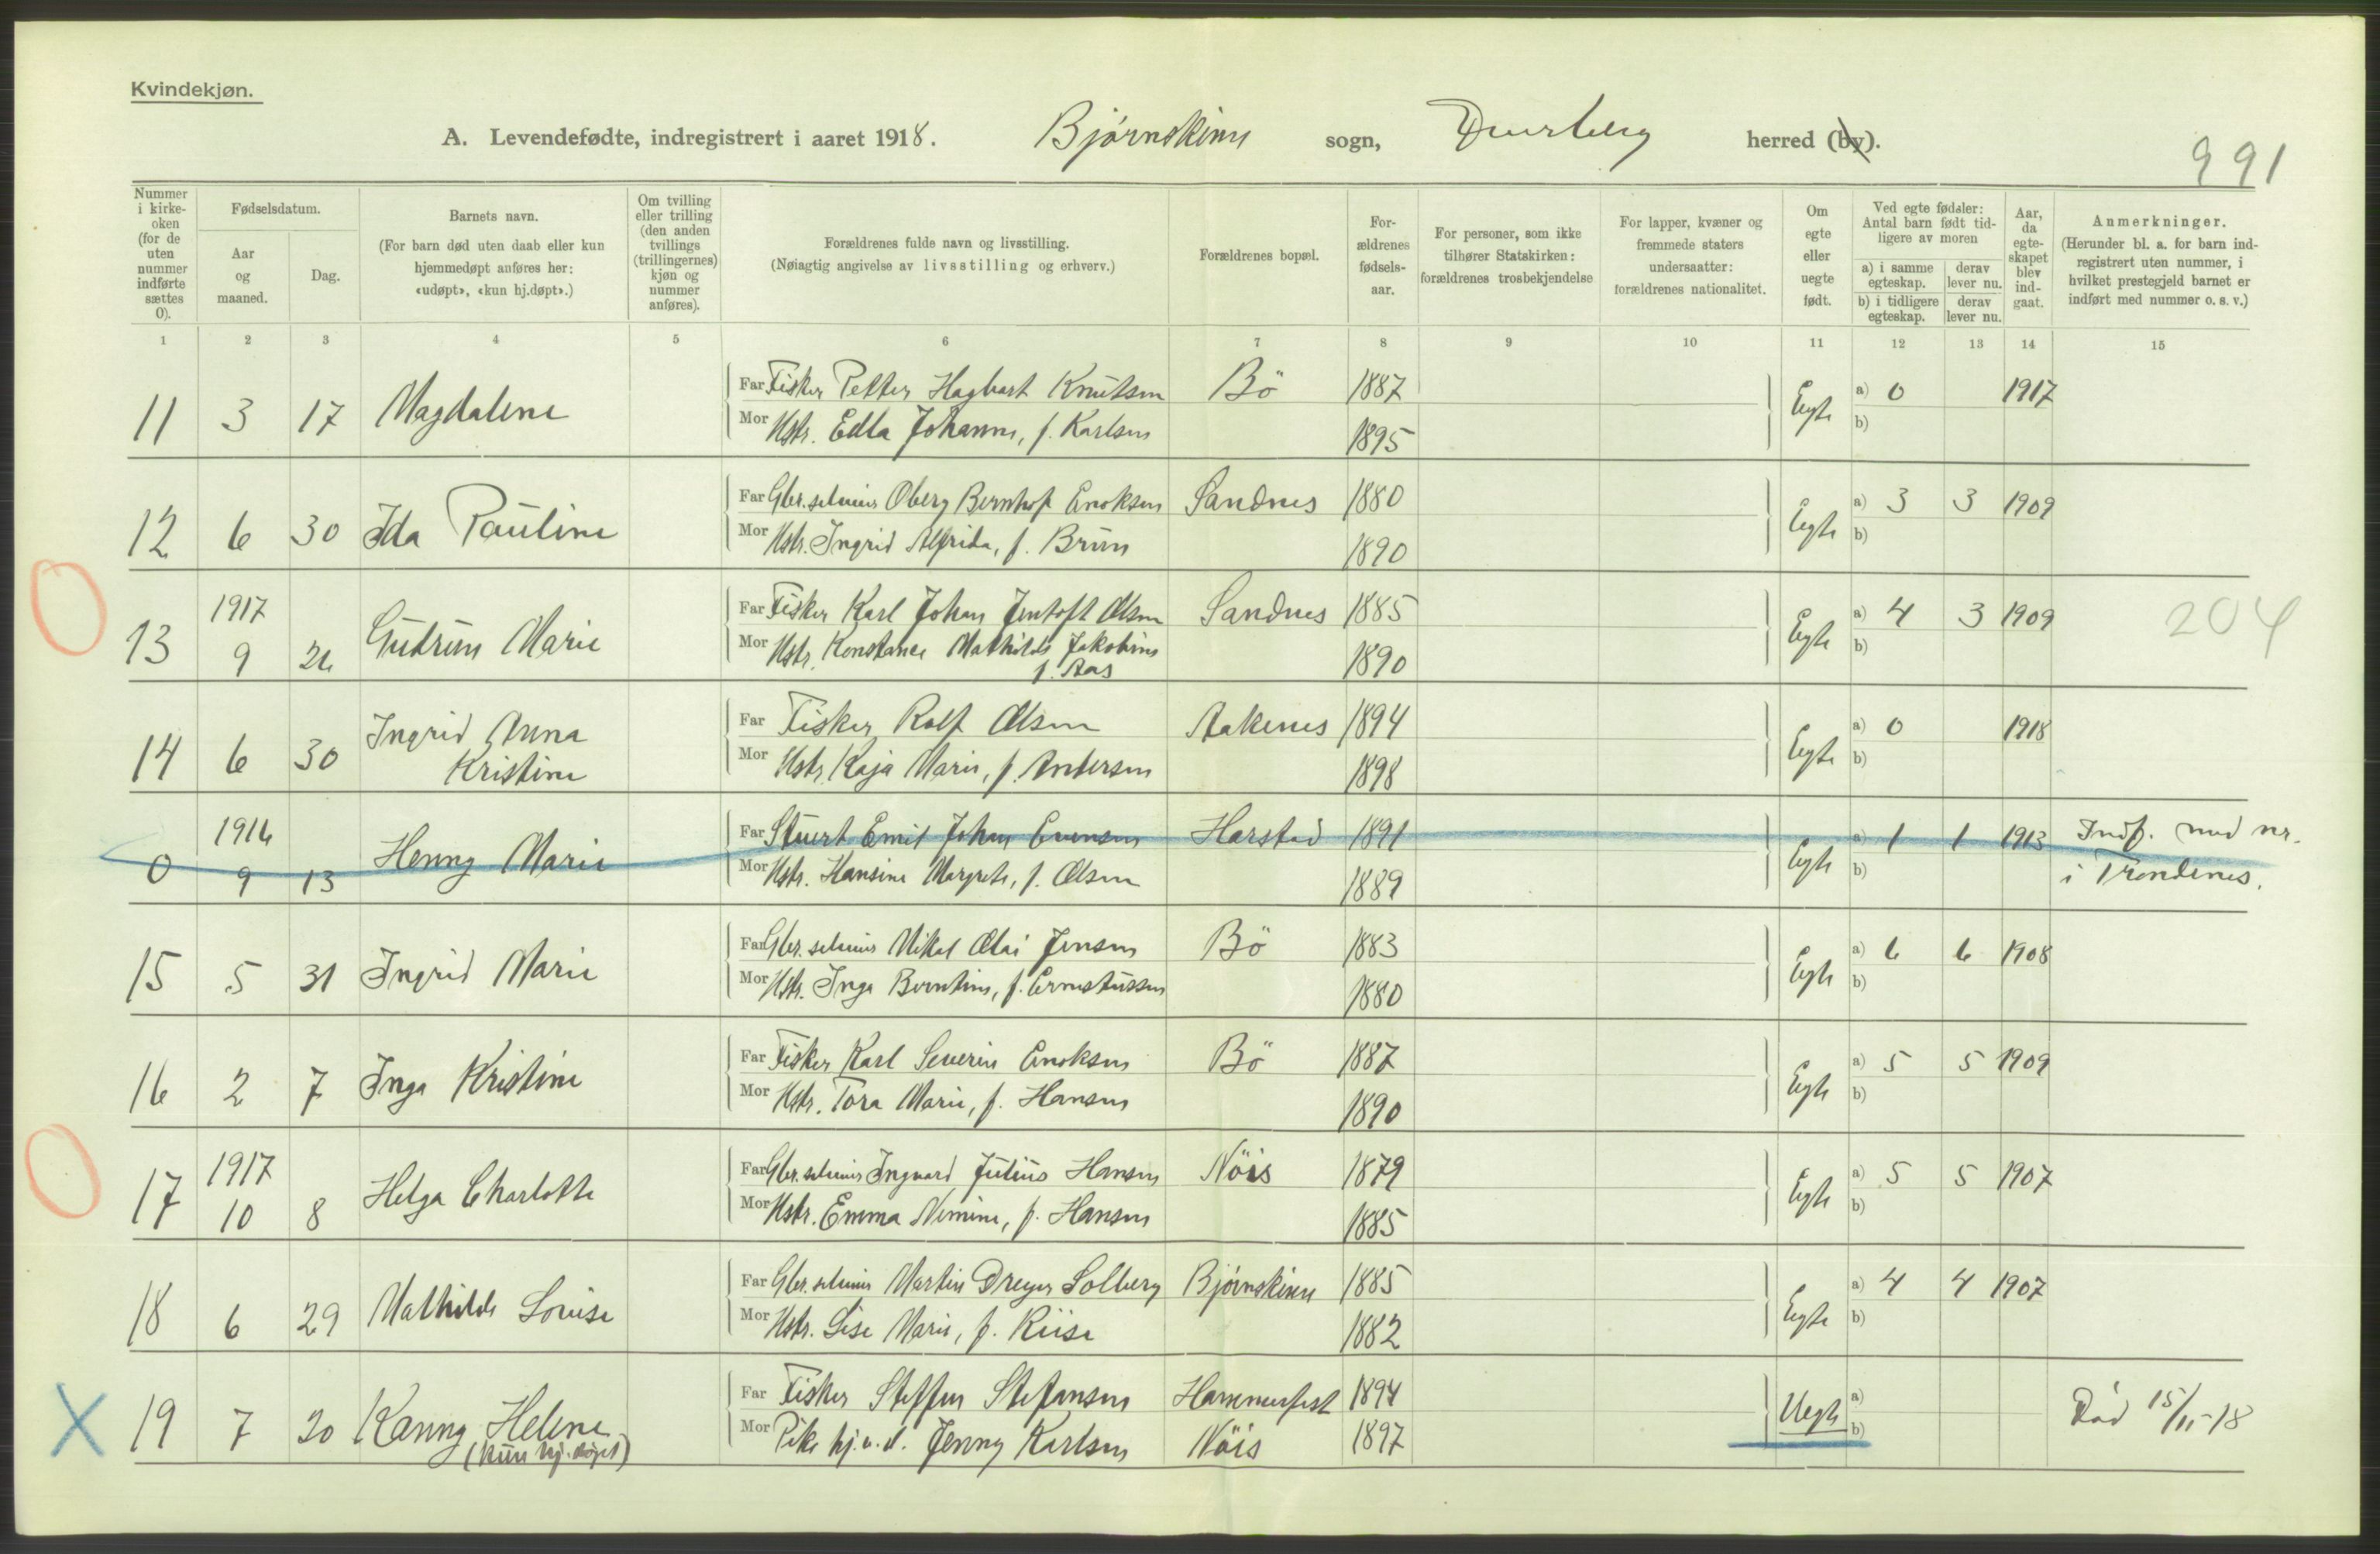 Kvindekjøn.
A. Levendefødte, indregistrert i aaret 1918. Bjørnskinn sogn, Dverberg herred (by).
991
Nummer i kirke-oken (for de uten nummer indførte sættes 0).
Fødselsdatum.
Aar og maaned.
Dag.
Barnets navn.
(For barn død uten daab eller kun hjemmedøpt anføres her: «udøpt», «kun hj.døpt».)
Om tvilling eller trilling (den anden tvillings (trillingernes) kjøn og nummer anføres).
Forældrenes fulde navn og livsstilling.
(Nøiagtig angivelse av livsstilling og erhverv.)
Forældrenes bopæl.
For-ældrenes fødsels-aar.
For personer, som ikke tilhører Statskirken: forældrenes trosbekjendelse
For lapper, kvæner og fremmede staters undersaatter: forældrenes nationalitet.
Om egte eller uegte født.
Ved egte fødsler: Antal barn født tid-ligere av moren
a) i samme egteskap. derav lever nu.
b) i tidligere egteskap. derav lever nu.
Aar, da egte-skapet blev ind-gaat.
Anmerkninger.
(Herunder bl. a. for barn ind-registrert uten nummer, i hvilket prestegjeld barnet er indført med nummer o. s. v.)
1 2 3 4 5 6 7 8 9 10 11 12 13 14 15
11 3 17 Magdalene Far Fisker Petter Hagbart Knutsen Bö 1887 Egte a) 0 1917
Mor Hstr. Edla Johanne, f. Karlsen 1895 b)
12 6 30 Ida Pauline Far Gbr. Oberg Bernhof Enoksen Sandnes 1880 Egte a) 3 3 1909
Mor Hstr. Ingrid Alfrida, f. Brun 1890 b)
13 1917 9 26 Gudrun Marie Far Fisker Karl Johan Jentoft Olsen Sandnes 1885 Egte a) 4 3 1909 204
Mor Hstr. Konstance Mathilde Jakobine 1890 b)
f. Aas
14 6 30 Ingrid Anna Kristine Far Fisker Rolf Olsen Aakenes 1894 Egte a) 0 1918
Mor Hstr. Kaja Marie, f. Andersen 1898 b)
0 1916 9 13 Henny Marie Far Stuert Emil Johan Evensen Harstad 1891 Egte a) 1 1 1913 Indf. med nr.
Mor Hstr. Hansine Margrete, f. Olsen 1889 b) i Trondenes.
15 5 31 Ingrid Marie Far Gbr. Mikal Olai Jensen Bö 1883 Egte a) 6 6 1908
Mor Hstr. Inga Berntine, f. Ernstussen 1880 b)
16 2 7 Inga Kristine Far Fisker Karl Severin Enoksen Bö 1887 Egte a) 5 5 1909
Mor Hstr. Tora Marie, f. Hansen 1890 b)
17 1917 10 8 Helga Charlotte Far Gbr. Ingvard Julius Hansen Nöis 1879 Egte a) 5 5 1907
Mor Hstr. Emma Nimine, f. Hansen 1885 b)
18 6 29 Mathilde Lovise Far Gbr. Martin Dreyer Solberg Bjørnskinn 1885 Egte a) 4 4 1907
Mor Hstr. Lise Marie, f. Riise 1882 b)
X 19 7 20 Kanny Helene Far Fisker Steffen Stefansen Hammerfest 1894 Uegte a) Död 15/11-18
(kun hj.døpt) Mor Pike hj.v.d. Jenny Karlsen Nöis 1897 b)